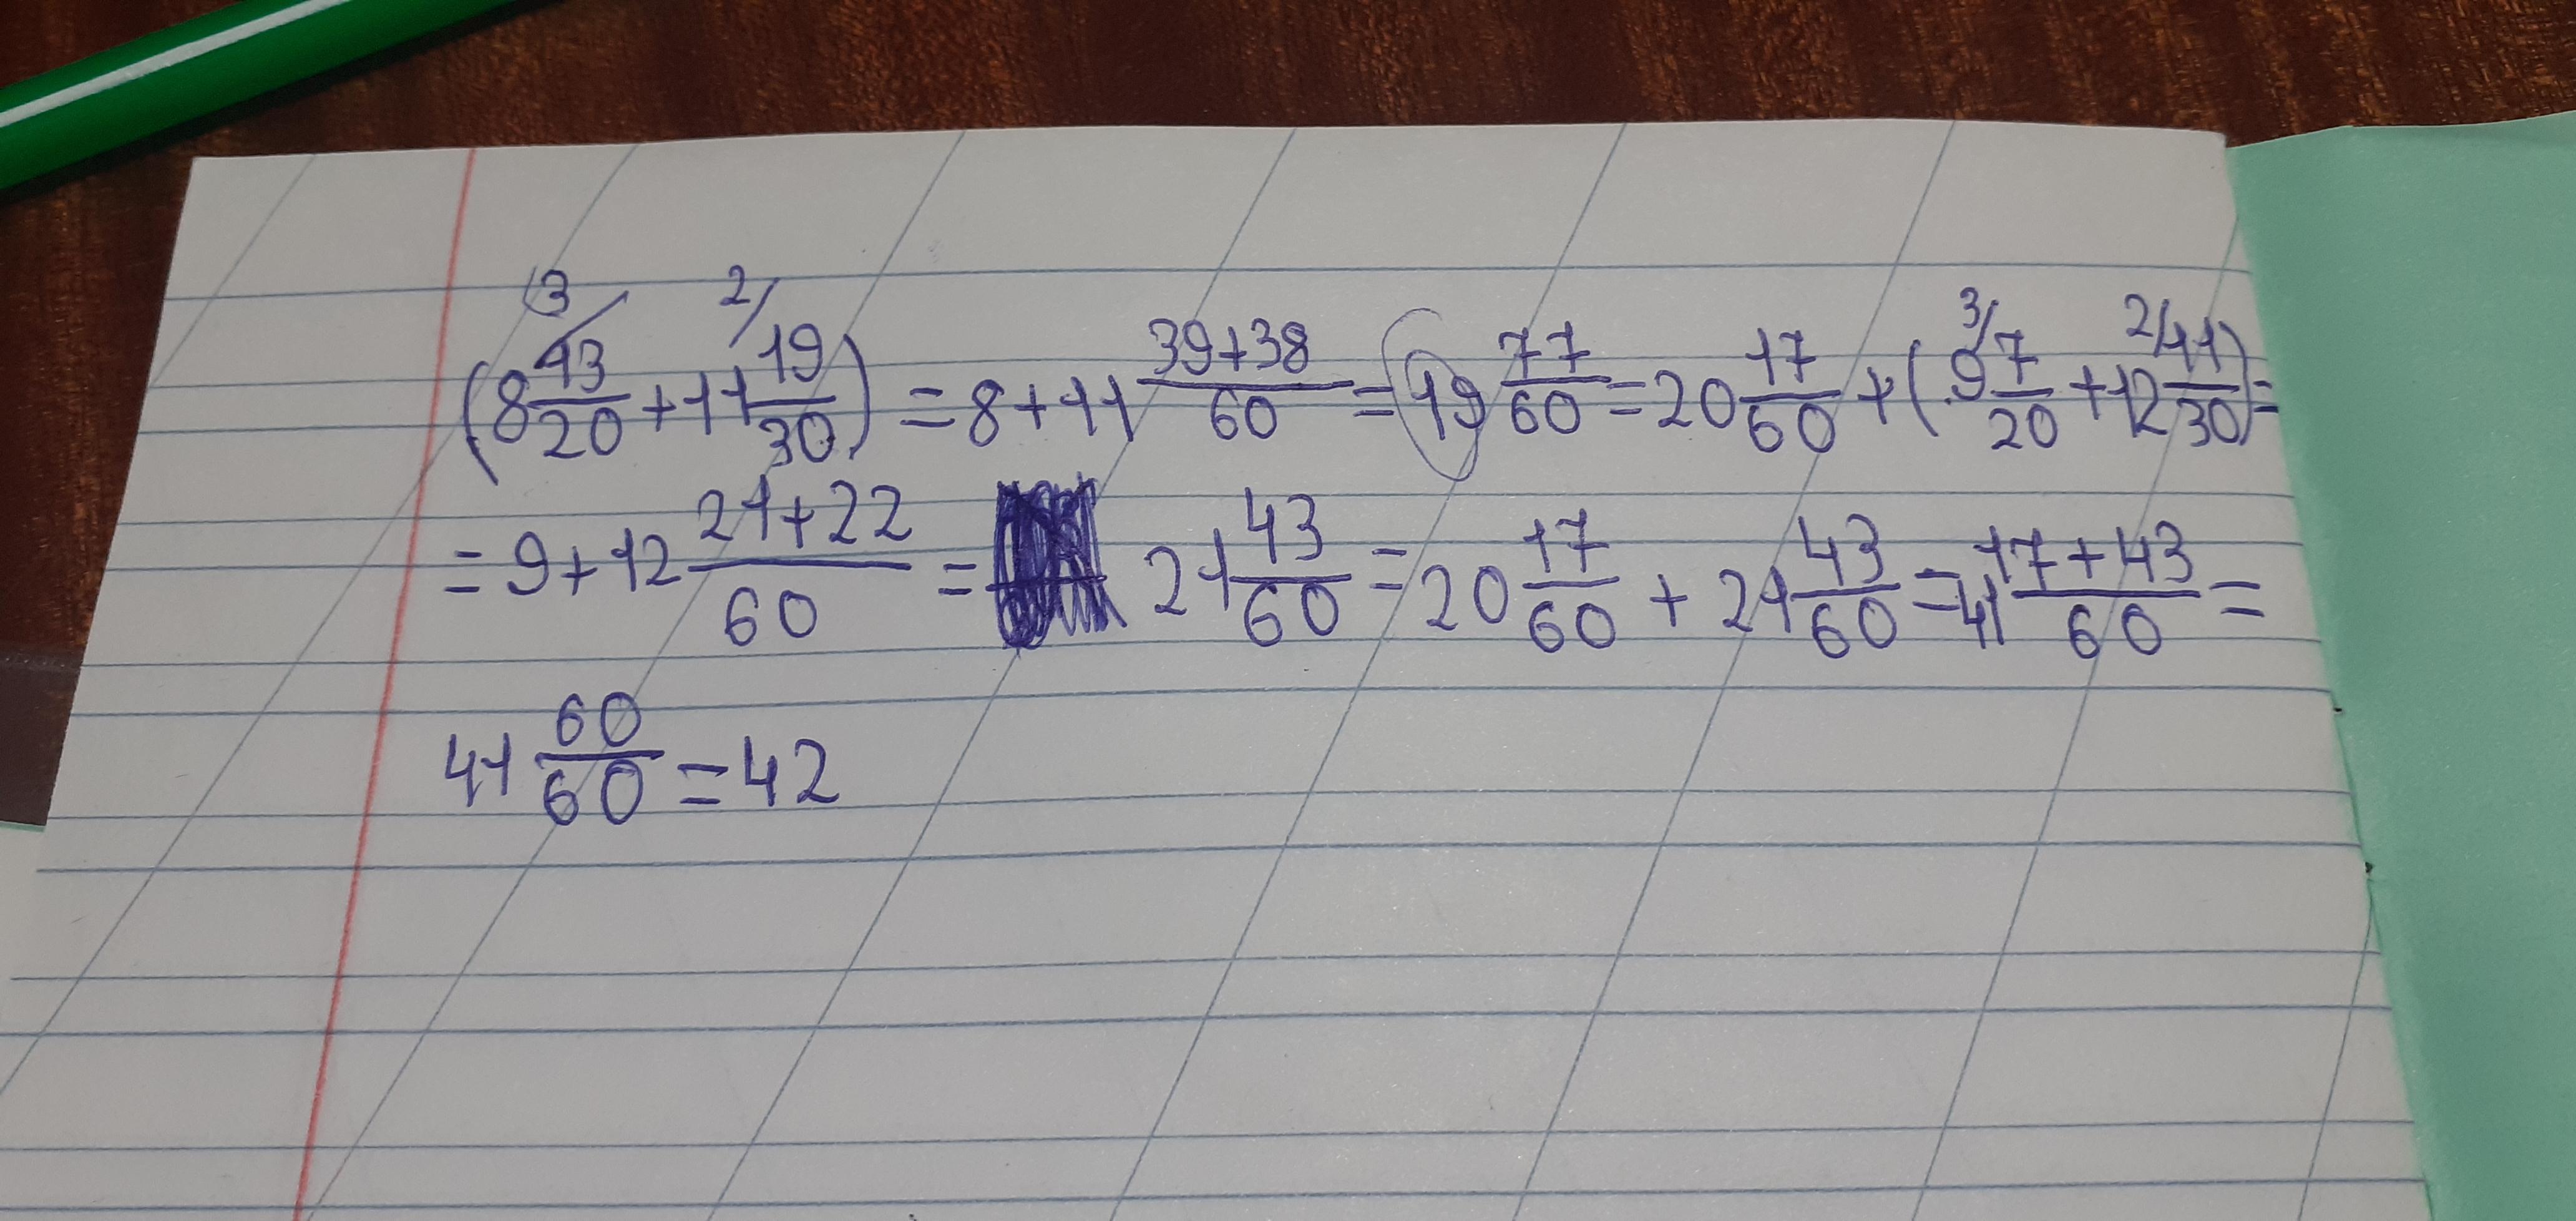 (8 13/20 + 11 19/30) = 8+11 39+38/60 = 19 77/60 = 20 17/60 + (9 7/20 + 12 11/30) =
= 9+12 21+22/60 = 21 43/60 = 20 17/60 + 21 43/60 = 41 17+43/60 =
41 60/60 = 42